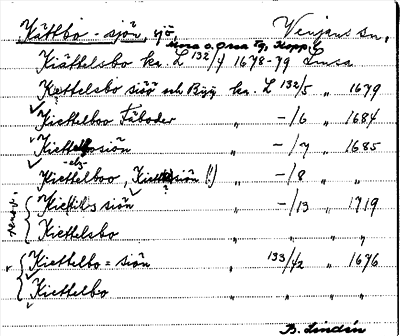 Kättbo-sjön, sjö, Venjans sn,
Mora o. Orsa tg, Kopp.
Kiättelsbo ka. L 132/4 1678-79 Lmsa
Kettelsbo siöö och Byy ka. L 132/5 " 1679
Kiettelboo Fäboder " -/6 " 1684
Kiettelbosiön " -/7 " 1685
Kiettelboo, Kiettelsiön (!) " -/8 " "
Kiettils siön " -/13 " 1719
Kiettelsbo " " " "
Kiettelbo = siön " 133/42 " 1676
Kiettelbo " " " "
B. Lindén